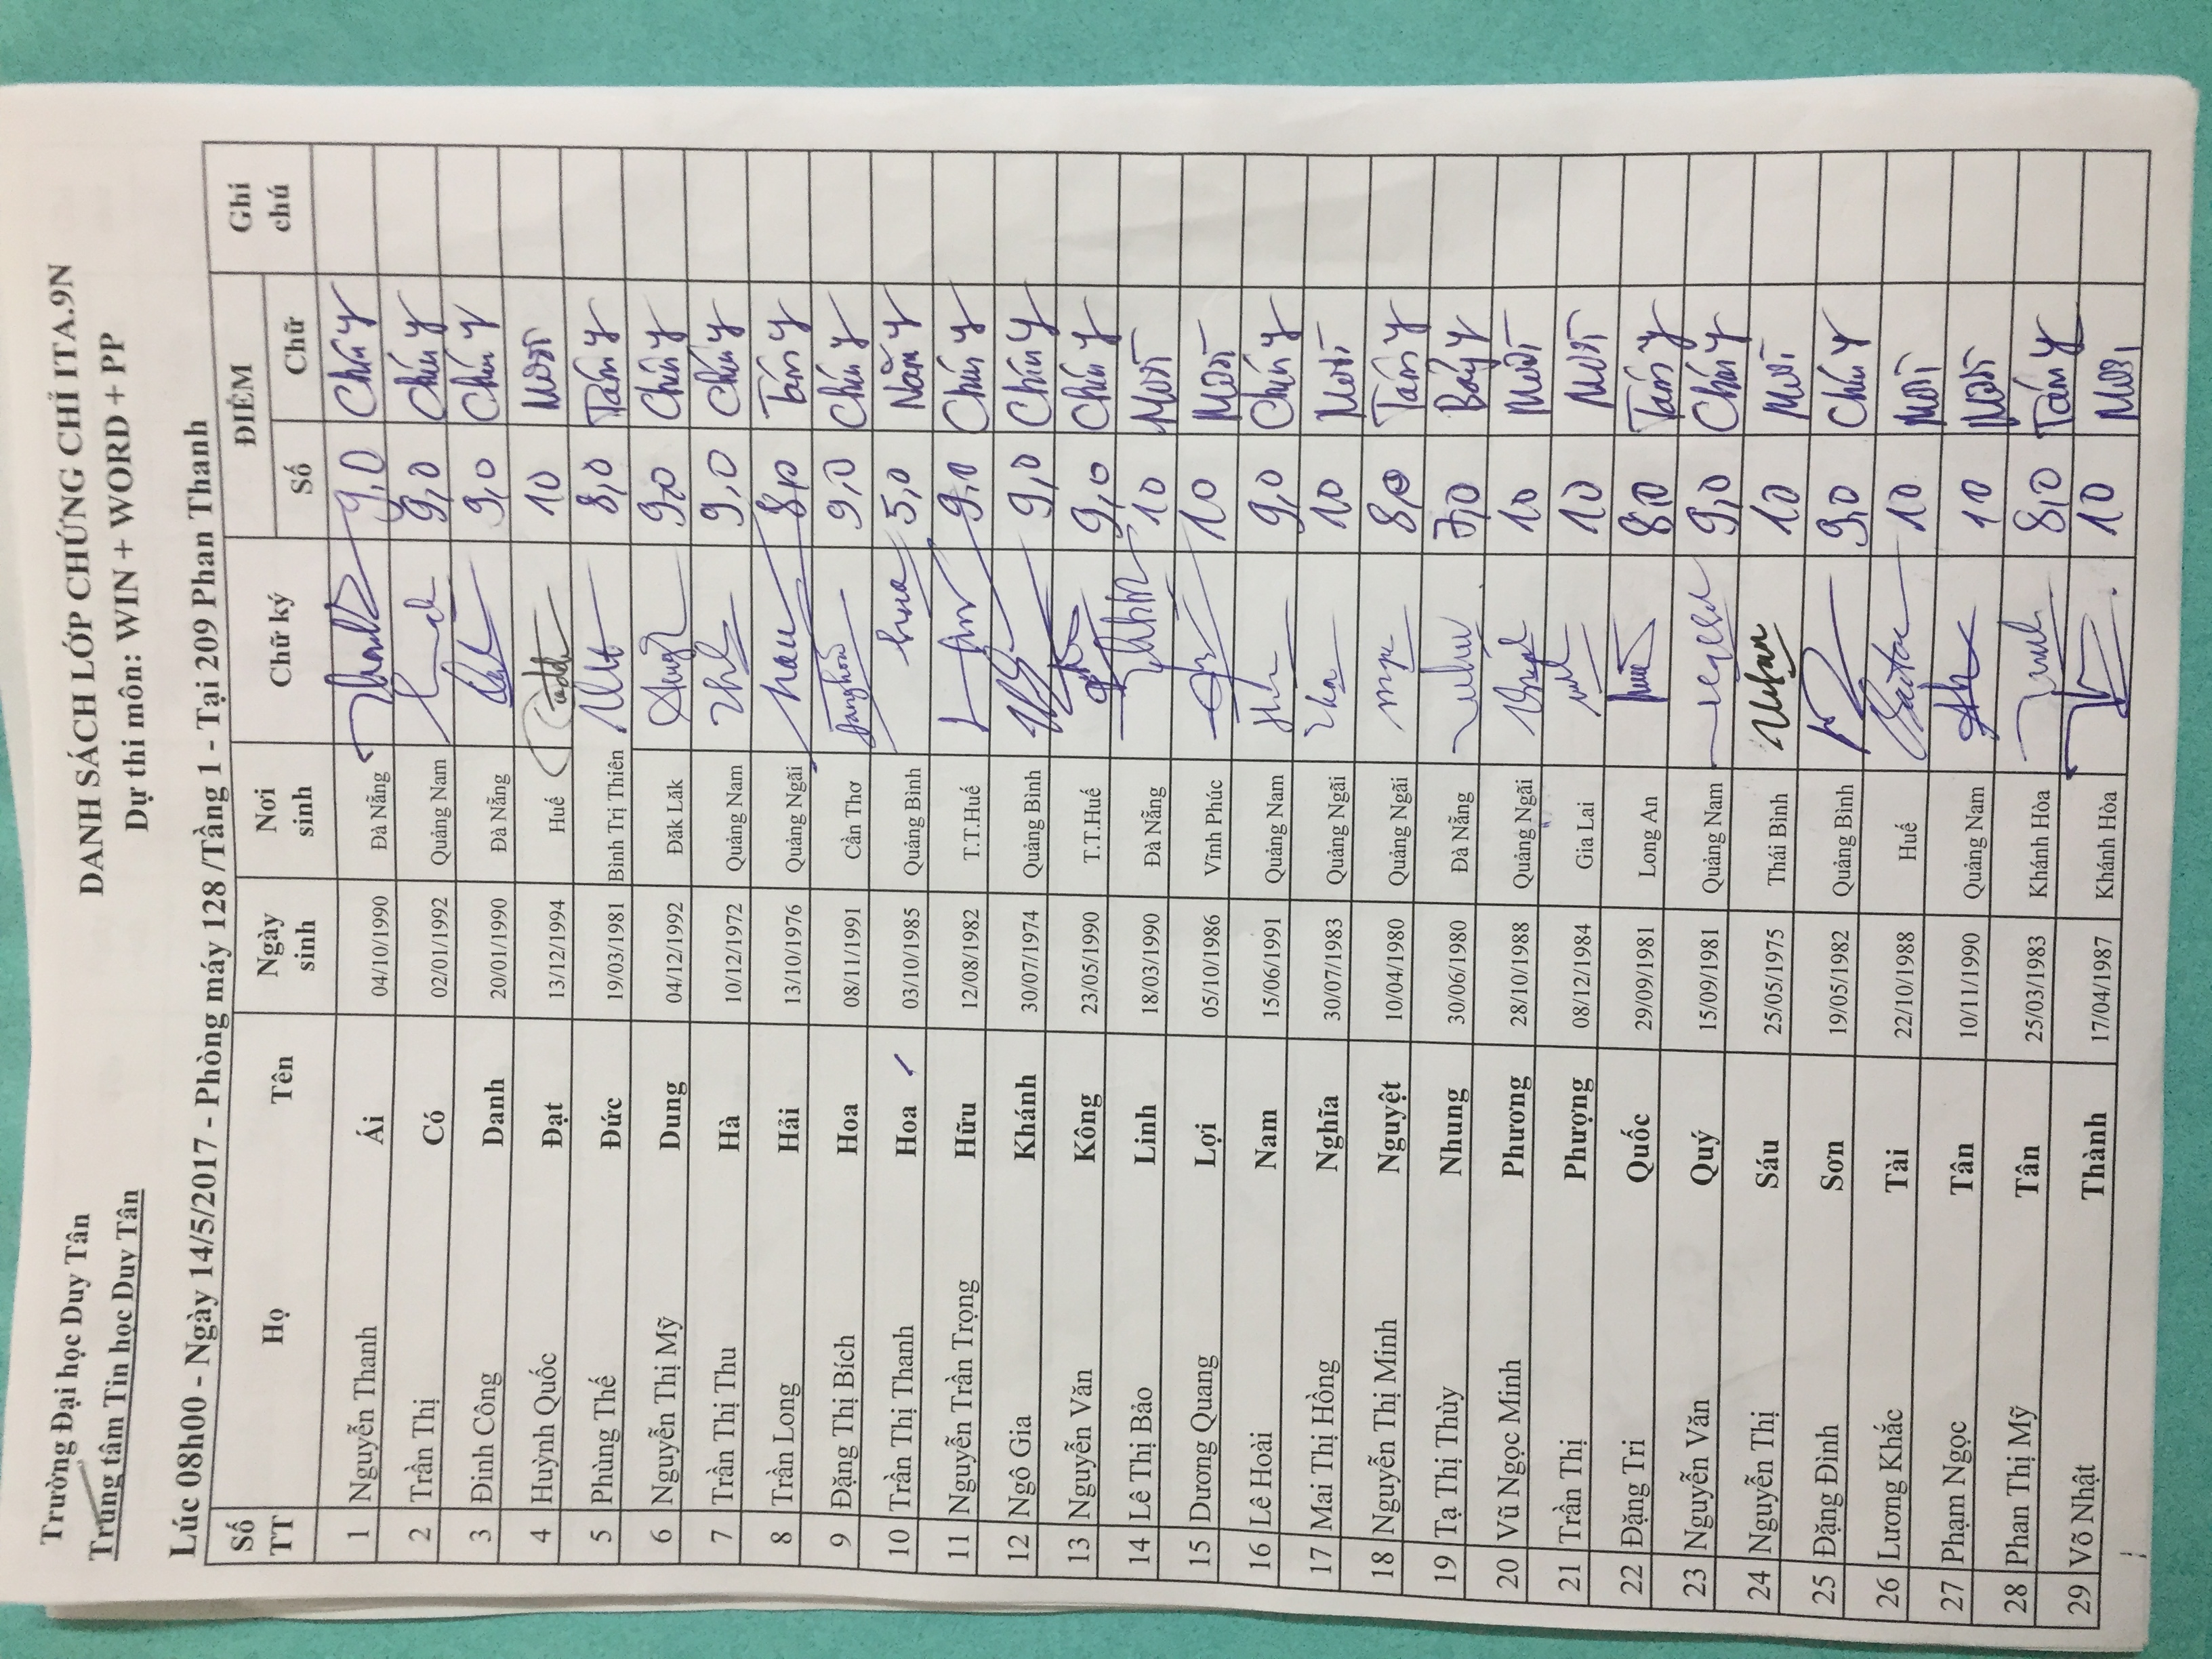 Trường Đại học Duy Tân
Trung tâm Tin học Duy Tân
DANH SÁCH LỚP CHỨNG CHỈ ITA.9N
Dự thi môn: WIN + WORD + PP
Lúc 08h00 - Ngày 14/5/2017 - Phòng máy 128 /Tầng 1 - Tại 209 Phan Thanh
Số TT Họ Tên Ngày sinh Nơi sinh Chữ ký ĐIỂM Số Chữ Ghi chú
1 Nguyễn Thanh Ái 04/10/1990 Đà Nẵng 9,0 Chín y
2 Trần Thị Có 02/01/1992 Quảng Nam 9,0 Chín y
3 Đinh Công Danh 20/01/1990 Đà Nẵng 9,0 Chín y
4 Huỳnh Quốc Đạt 13/12/1994 Huế 10 Mười
5 Phùng Thế Đức 19/03/1981 Bình Trị Thiên 8,0 Tám y
6 Nguyễn Thị Mỹ Dung 04/12/1992 Đăk Lăk 9,0 Chín y
7 Trần Thị Thu Hà 10/12/1972 Quảng Nam 9,0 Chín y
8 Trần Long Hải 13/10/1976 Quảng Ngãi 8,0 Tám y
9 Đặng Thị Bích Hoa 08/11/1991 Cần Thơ 9,0 Chín y
10 Trần Thị Thanh Hoa 03/10/1985 Quảng Bình 5,0 Năm y
11 Nguyễn Trần Trọng Hữu 12/08/1982 T.T.Huế 9,0 Chín y
12 Ngô Gia Khánh 30/07/1974 Quảng Bình 9,0 Chín y
13 Nguyễn Văn Kông 23/05/1990 T.T.Huế 9,0 Chín y
14 Lê Thị Bảo Linh 18/03/1990 Đà Nẵng 10 Mười
15 Dương Quang Lợi 05/10/1986 Vĩnh Phúc 10 Mười
16 Lê Hoài Nam 15/06/1991 Quảng Nam 9,0 Chín y
17 Mai Thị Hồng Nghĩa 30/07/1983 Quảng Ngãi 10 Mười
18 Nguyễn Thị Minh Nguyệt 10/04/1980 Quảng Ngãi 8,0 Tám y
19 Tạ Thị Thùy Nhung 30/06/1980 Đà Nẵng 7,0 Bảy y
20 Vũ Ngọc Minh Phương 28/10/1988 Quảng Ngãi 10 Mười
21 Trần Thị Phượng 08/12/1984 Gia Lai 10 Mười
22 Đặng Tri Quốc 29/09/1981 Long An 8,0 Tám y
23 Nguyễn Văn Quý 15/09/1981 Quảng Nam 9,0 Chín y
24 Nguyễn Thị Sáu 25/05/1975 Thái Bình 10 Mười
25 Đặng Đình Sơn 19/05/1982 Quảng Bình 9,0 Chín y
26 Lương Khắc Tài 22/10/1988 Huế 10 Mười
27 Phạm Ngọc Tân 10/11/1990 Quảng Nam 10 Mười
28 Phan Thị Mỹ Tân 25/03/1983 Khánh Hòa 8,0 Tám y
29 Võ Nhật Thành 17/04/1987 Khánh Hòa 10 Mười